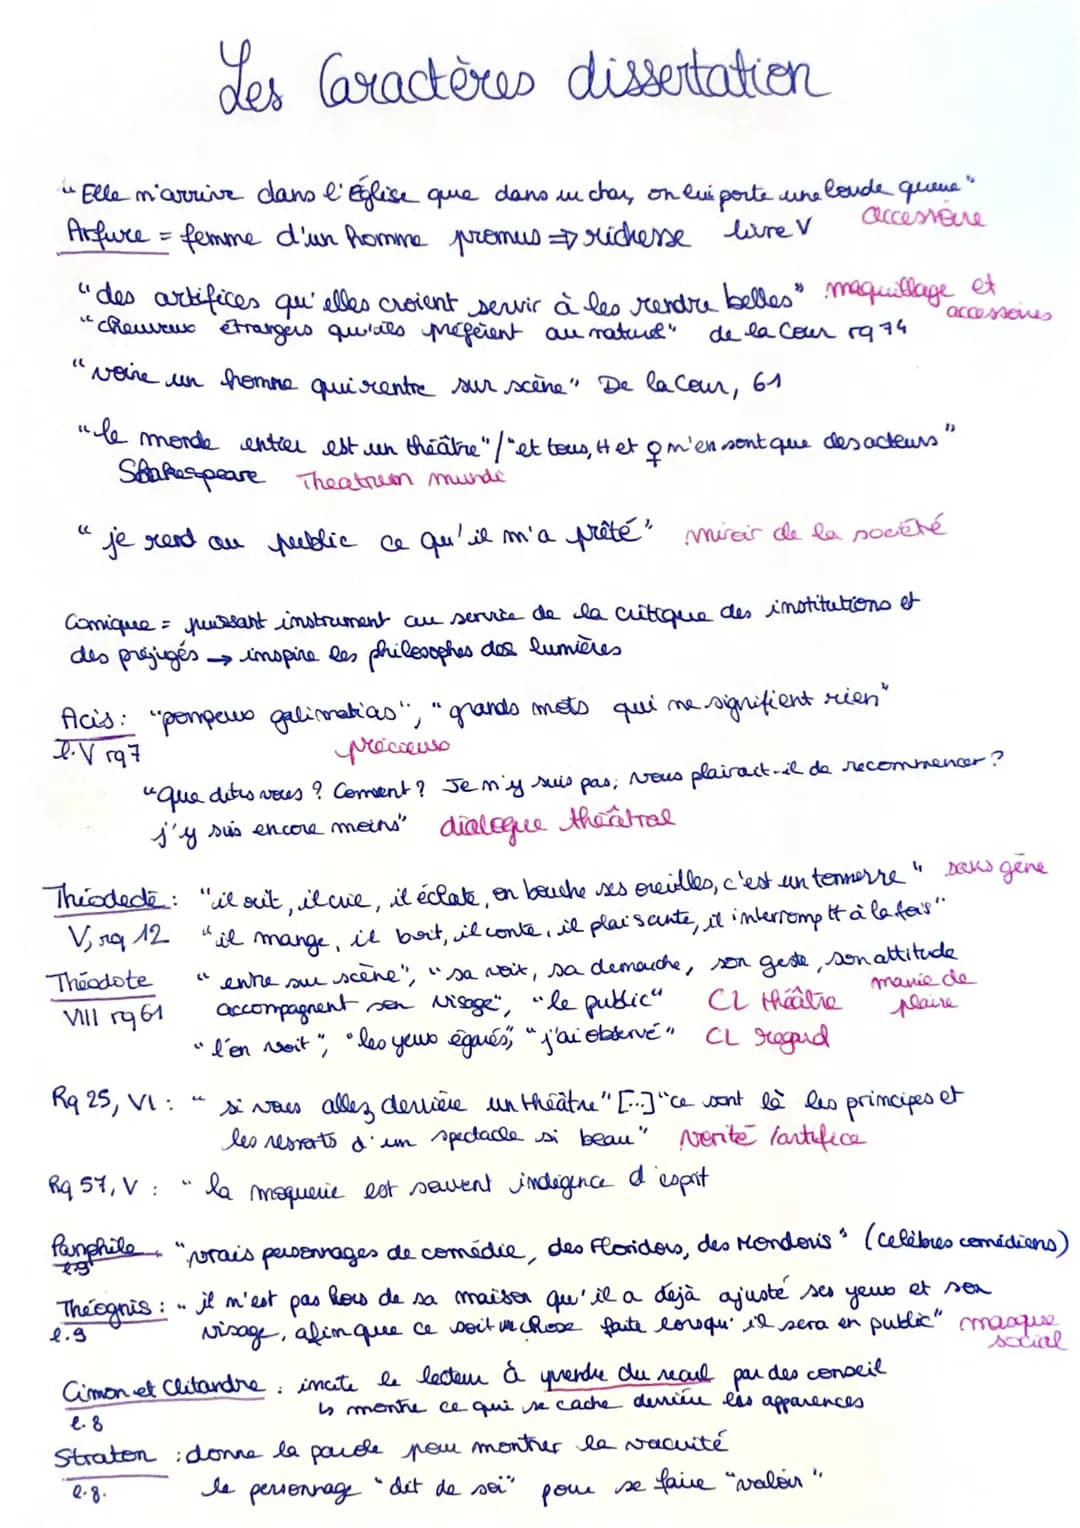 Les Caractères dissertation
"Elle n'arrive dans l'Église que dans un char, on lui porte une lourde queue"
accessoire
Arfure = femme d'un homme promus => richesse livre V
"des artifices qu'elles croient servir à les rendre belles" maquillage et
accessoires
"cheveux étrangers qu'ils préfèrent au naturel" de la Cour rq 74
"voire un homme qui rentre sur scène" De la Cour, 61
"le monde entier est un théâtre"/"et tous, H et ♀ n'en sont que des acteurs"
Shakespeare Theatrum mundi
"je rend au public ce qu'il m'a prêté" miroir de la société
Comique = puissant instrument au service de la critique des institutions et
des préjugés → inspire les philosophes des lumières
Acis : "pompeux galimatias", "grands mots qui ne signifient rien"
l.V rq7 précieux
"que dites vous ? Comment ? Je n'y suis pas; vous plairait-il de recommencer ?
j'y suis encore moins" dialogue théâtral
Théodecte : "il rit, il crie, il éclate, on bouche ses oreilles, c'est un tonnerre" sans gêne
V, rq 12 "il mange, il boit, il conte, il plaisante, il interromp tt à la fois"
Théodote "entre sur scène", "sa voix, sa demarche, son geste, son attitude
VIII rq 61 accompagnent son visage", "le public" CL théâtre manie de
plaire
"l'on voit", "les yeux égarés", "j'ai observé" CL regard
Rq 25, VI : "si vous allez derrière un théâtre" [...] "ce sont là les principes et
les ressorts d'un spectacle si beau" vérité /artifice
Rq 57, V : "la moquerie est souvent indigence d'esprit
Pamphile "vrais personnages de comédie, des Floridors, des Mondoris" (célèbres comédiens)
l.9
Théognis : "il n'est pas hors de sa maison qu'il a déjà ajusté ses yeux et son
l.9 visage, afin que ce soit une chose faite lorsqu'il sera en public" masque
social
Cimon et Clitandre : incite le lecteur à prendre du recul par des conseil
l.8 ↳ montre ce qui se cache derrière les apparences
Straton : donne la parole pour montrer la vacuité
l.8. le personnage "dit de soi" pour se faire "valoir"